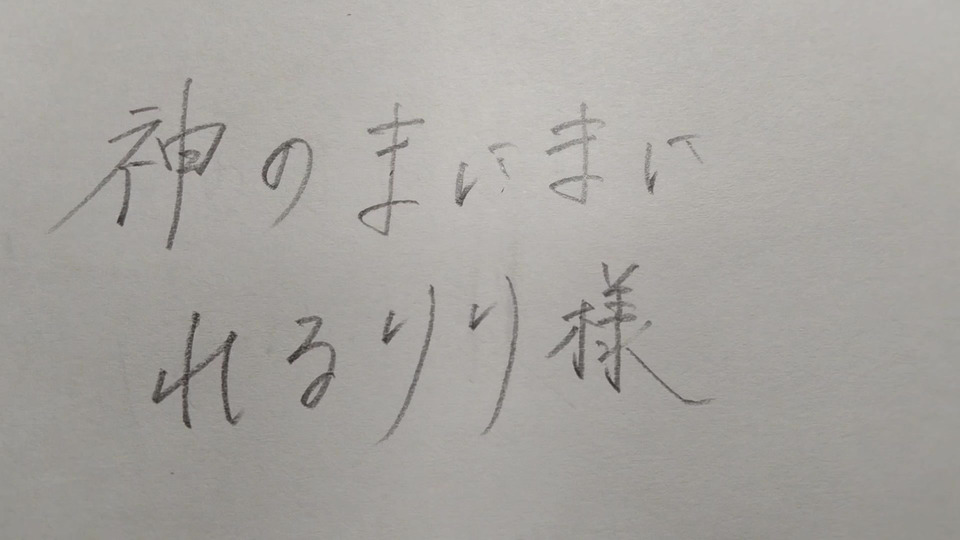 神のまにまに
れるりり様